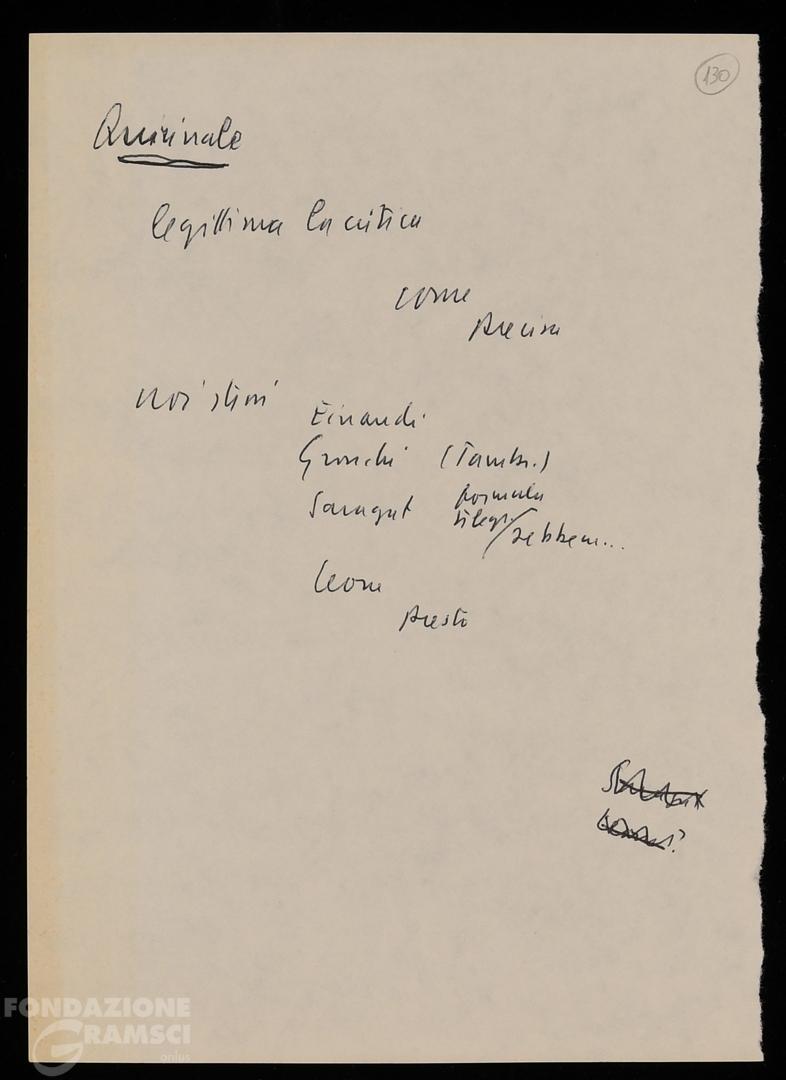 130
Quirinale
legittima la critica
come
noi stessi
Einaudi
Gronchi (Tambr.)
Saragat formula
sebbene...
Leone
presto
FONDAZIONE
GRAMSCI
onlus